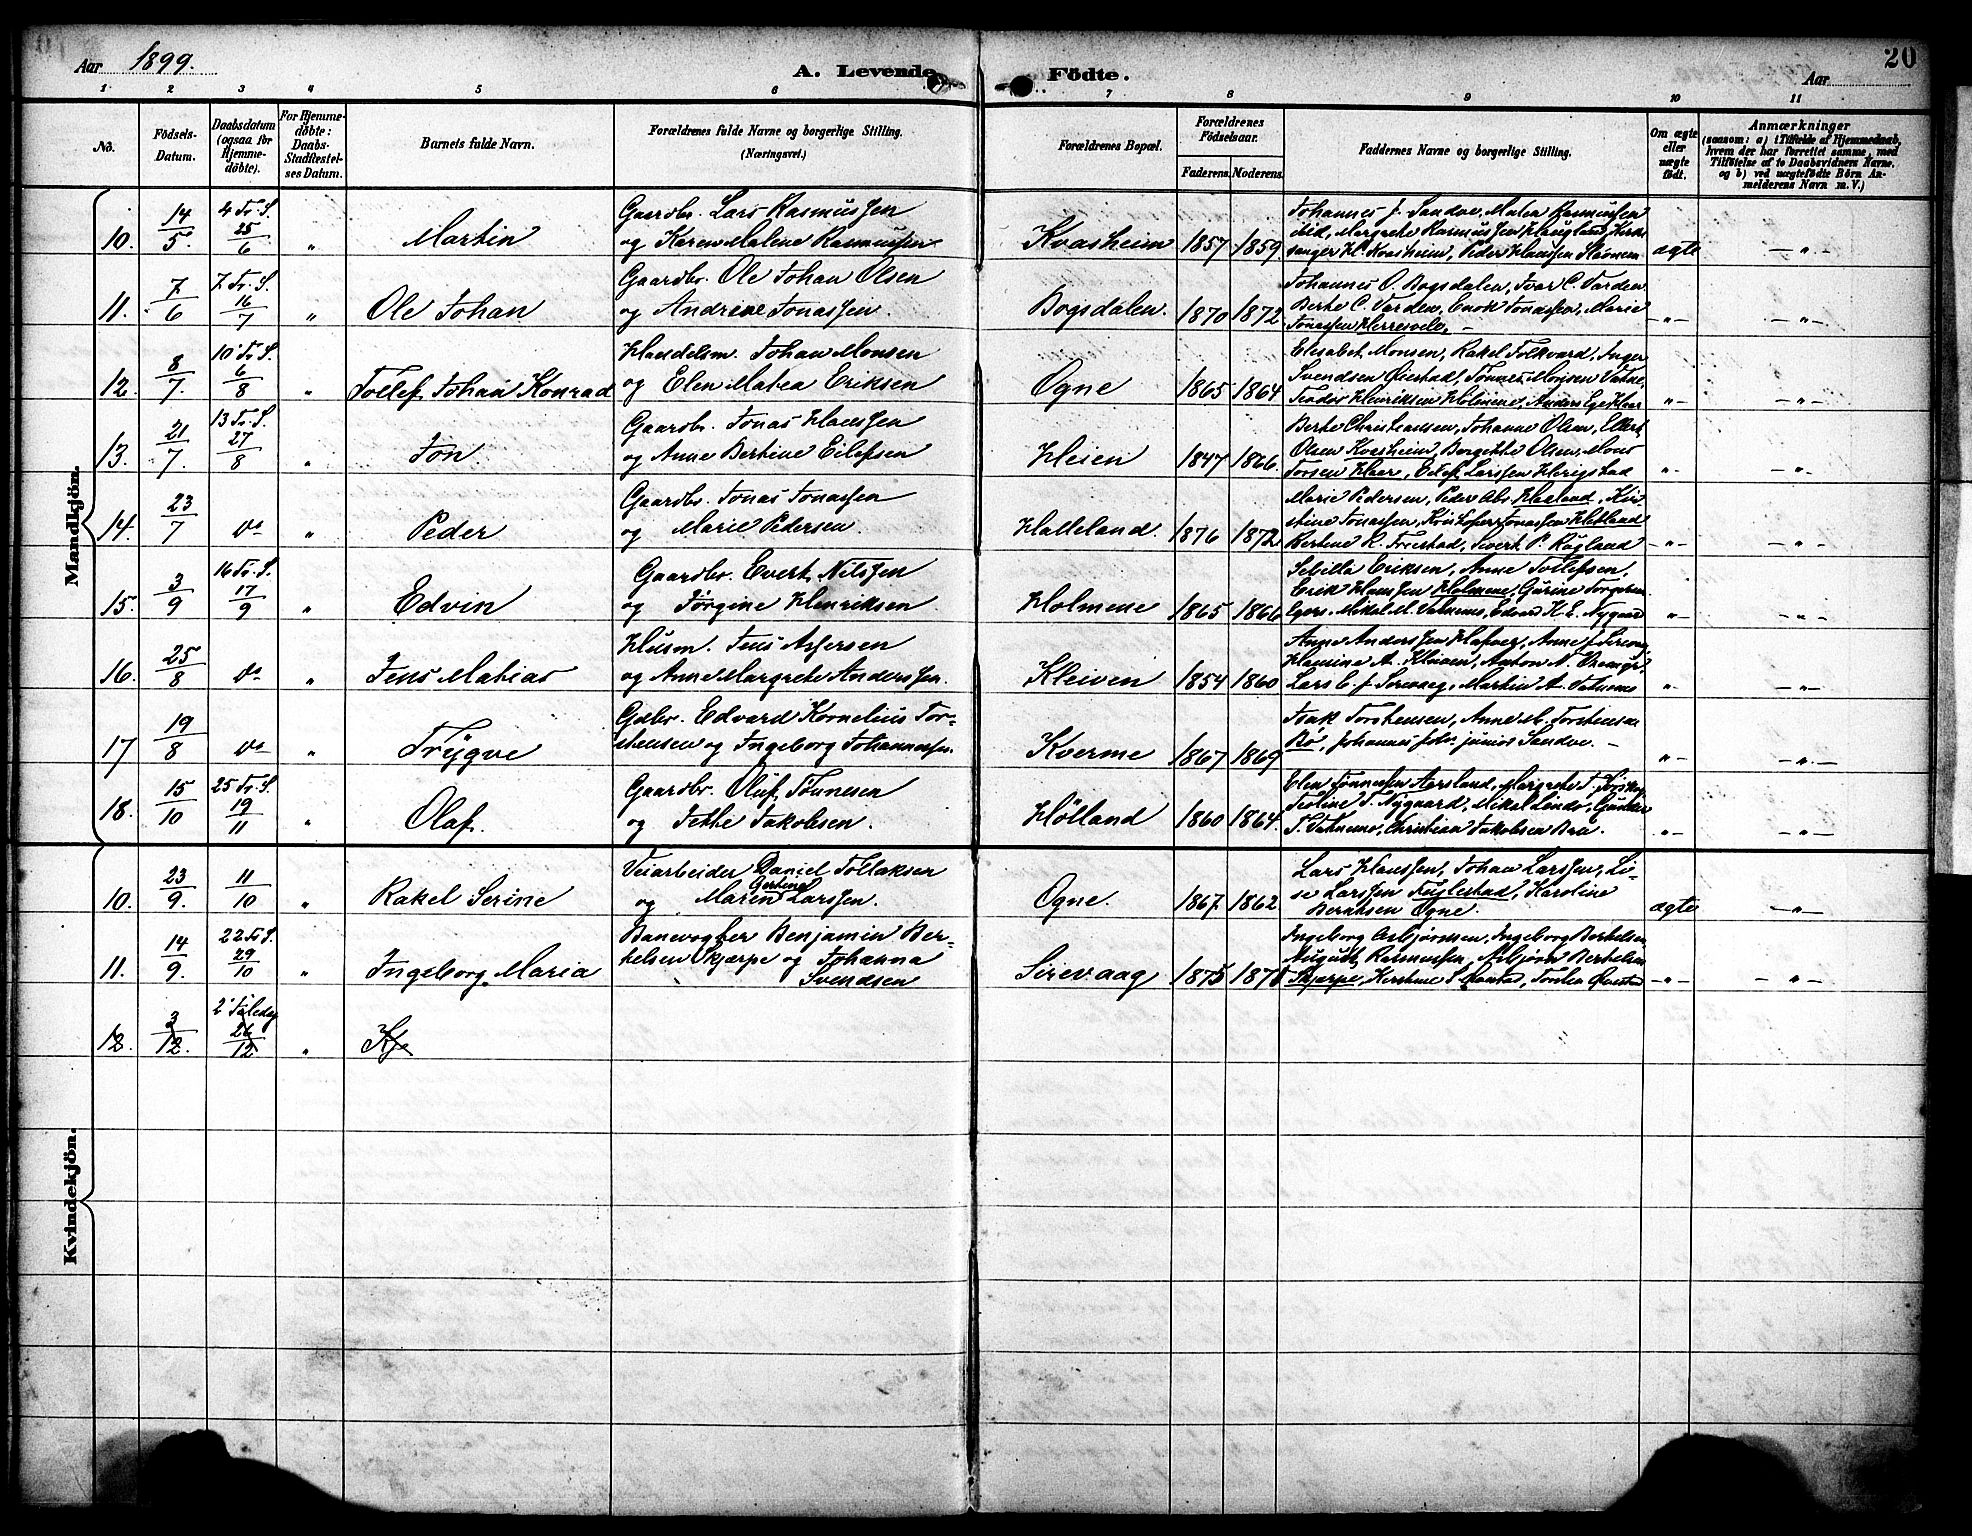 Aar 1899.
A. Levende Födte.
Aar
20
1 2 3 4 5 6 7 8 9 10 11
No.
Födsels-Datum.
Daabsdatum (ogsaa for Hjemmedöbte).
For Hjemmedöbte: Daabs-Stadfestelses Datum.
Barnets fulde Navn.
Forældrenes fulde Navne og borgerlige Stilling. (Næringsvei.)
Forældrenes Bopæl.
Forældrenes Födselsaar.
Faderens. Moderens.
Faddernes Navne og borgerlige Stilling.
Om ægte eller uægte födt.
Anmærkninger
(saasom: a) i Tilfælde af Hjemmedaab, hvem der har forrettet samme, med Tilföielse af to Daabsvidners Navne, og b) ved uægtefödte Börn Anmelderens Navn m. V.)
Mandkjön.
10. 14/5 4 Tr. S. 25/6 " Martin
Gaardbr. Lars Rasmussen
og Karen Malene Rasmussen
Kvasheim 1857 1859
Johannes J. Sandve, Malea Rasmussen
ibid, Margrete Rasmussen Haugland,
Kvasheim, Peder Hanssen
ægte — " —
11. 7/6 7 Tr. S. 16/7 " Ole Johan
Gaardbr. Ole Johan Olsen
og Andrine Jonassen.
Bogsdalen. 1870 1872
Johannes O. Bogsdalen, Ivar C. Varden
Berte C. Varden, Enok Jonassen, Marie
Jonassen Herresvele, —
— " — — " —
12. 8/7. 10 Tr. S. 6/8 " Tollef Johan Konrad
Handelsm. Johan Monsen
og Elen Matea Eriksen
Ogne 1865 1864
Elisabet Monsen, Rakel Folkvard, Inger
Svendsen Øiestad, Tønnes Monsen Vatne,
Teodor Henriksen Holmene, Anders
" — — " —
13. 21/7. 13 Tr. S. 27/8 " Jon
Gaardbr. Jonas Hanssen
og Anne Bertine Eilefsen
Heien 1847 1866.
Berte Christensen, Johanne Olsen, Ellert
Olsen Kvasheim, Borgitte Olsen, Mons
Torsen Haar, Eilef Larssen Herigstad
" — — " —
14. 23/7 do " Peder
Gaardbr. Jonas Jonassen
og Marie Pedersen
Halleland. 1876 1872
Marie Pedersen, Peder Abr. Haaland, Kri-
stine Jonassen, Kristofer Jonassen Hetland
Bertine R. Frøistad, Sivert P. Røgland
— " — — " —
15. 3/9 16 Tr. S. 17/9 " Edvin
Gaardbr. Evert Nilssen
og Jørgine Henriksen
Holmene 1865 1866
Sebilla Eriksen, Anne Tollefsen,
Erik Hanssen Holmene, Gurine Torgersen
Egers. Mikal M. Vatnemo, Edvard K. E. Nygaard
" — — " —
16. 25/8 do " Jens Matias
Husm. Jens Assersen
og Anne Margrete Anderssen.
Kleiven 1854 1860
Anne Anderssen
A. Kleiven, Anton N.
Lars C. J. Sirevaag, Martin A. Vatnemo
" — — " —
17 19/8 do " Trygve
Gdbr. Edvard Kornelius Tor-
stensen og Ingeborg Johannessen.
Kverme 1867 1869
Isak Torstensen, Anne M. Torstensen
Bø, Johannes Johs. junior Sandve. —
" — — " —
18. 15/10 25 Tr. S. 19/11 " Olaf.
Gaardbr. Oluf Tønnesen
og Jette Jakobsen.
Hölland 1860 1864.
Elen Tønnessen Aarsland, Margrete T.
Teoline T. Nygaard, Mikal Lindø, Gunder
T. Vatnemo, Christian Jakobsen Bru.
" — — " —
Kvindekjön.
10. 23/9. 11/10 " Rakel Serine
Veiarbeider Daniel Tollaksen
Gurtine
og Maren Larssen.
Ogne. 1867. 1862
Lars Hanssen, Johan Larssen, Li-
se Larssen Fuglestad, Karoline
Berntsen Ogne.
ægte — " —
11. 14/9. 22 Tr. S. 29/10 " Ingeborg Maria
Banevogter Benjamin Ber-
telsen Skjærpe og Johanna
Svendsen
Sirevaag 1875
Ingeborg Asbjørnsen, Ingeborg Bertelsen,
August Rasmussen, Asbjørn Bertelsen
Skjærpe, Kirstine S.
— " — — " —
12. 3/12. 2' Juledag 26/12 "